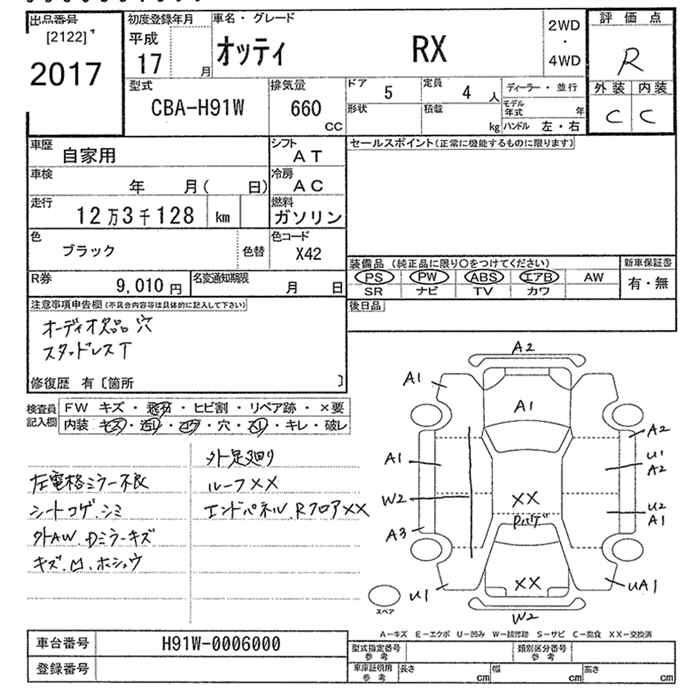 出品番号
[2122]
2017
初度登録年月
平成
17 月
車名・グレード
オッティ RX
2WD
・
4WD
評価点
R
外装 内装
C C
型式
CBA-H91W
排気量
660
CC
ドア
5
定員
4 人
ディーラー・並行
形状
積載
kg
モデル年式 年
ハンドル 左・右
車歴
自家用
シフト
AT
セールスポイント(正常に機能するものに限ります)
車検
年 月( 日)
冷房
AC
走行
12万3千128 km
燃料
ガソリン
色
ブラック
色替
色コード
X42
装備品 (純正品に限り○をつけてください)
新車保証書
PS PW ABS エアB AW
有・無
SR ナビ TV カワ
R券
9,010 円
名変通知期限
月 日
後日品
注意事項申告欄(不具合内容等は具体的に記入して下さい)
オーディオ欠品 穴
スタッドレスT
修復歴 有〔箇所 〕
検査員記入欄
FW キズ・飛石・ヒビ割・リペア跡・×要
内装 キズ・汚レ・コゲ・穴・スレ・キレ・破レ
外足廻り
左電格ミラー不良
ルーフXX
シートコゲ.シミ
エンドパネル.RフロアXX
外AW.Dミラーキズ
キズ.凹.ホシュウ
A2
A1
A1
A1
A2
U1
A2
W2
XX
U2
A1
A3
XX
U1
UA1
W2
スペア
A−キズ E−エクボ U−凹み W−補修跡 S−サビ C−腐食 XX−交換済
車台番号
H91W-0006000
登録番号
型式指定番号
参考
類別区分番号
参考
車庫証明用
参考
長さ cm
幅 cm
高さ cm